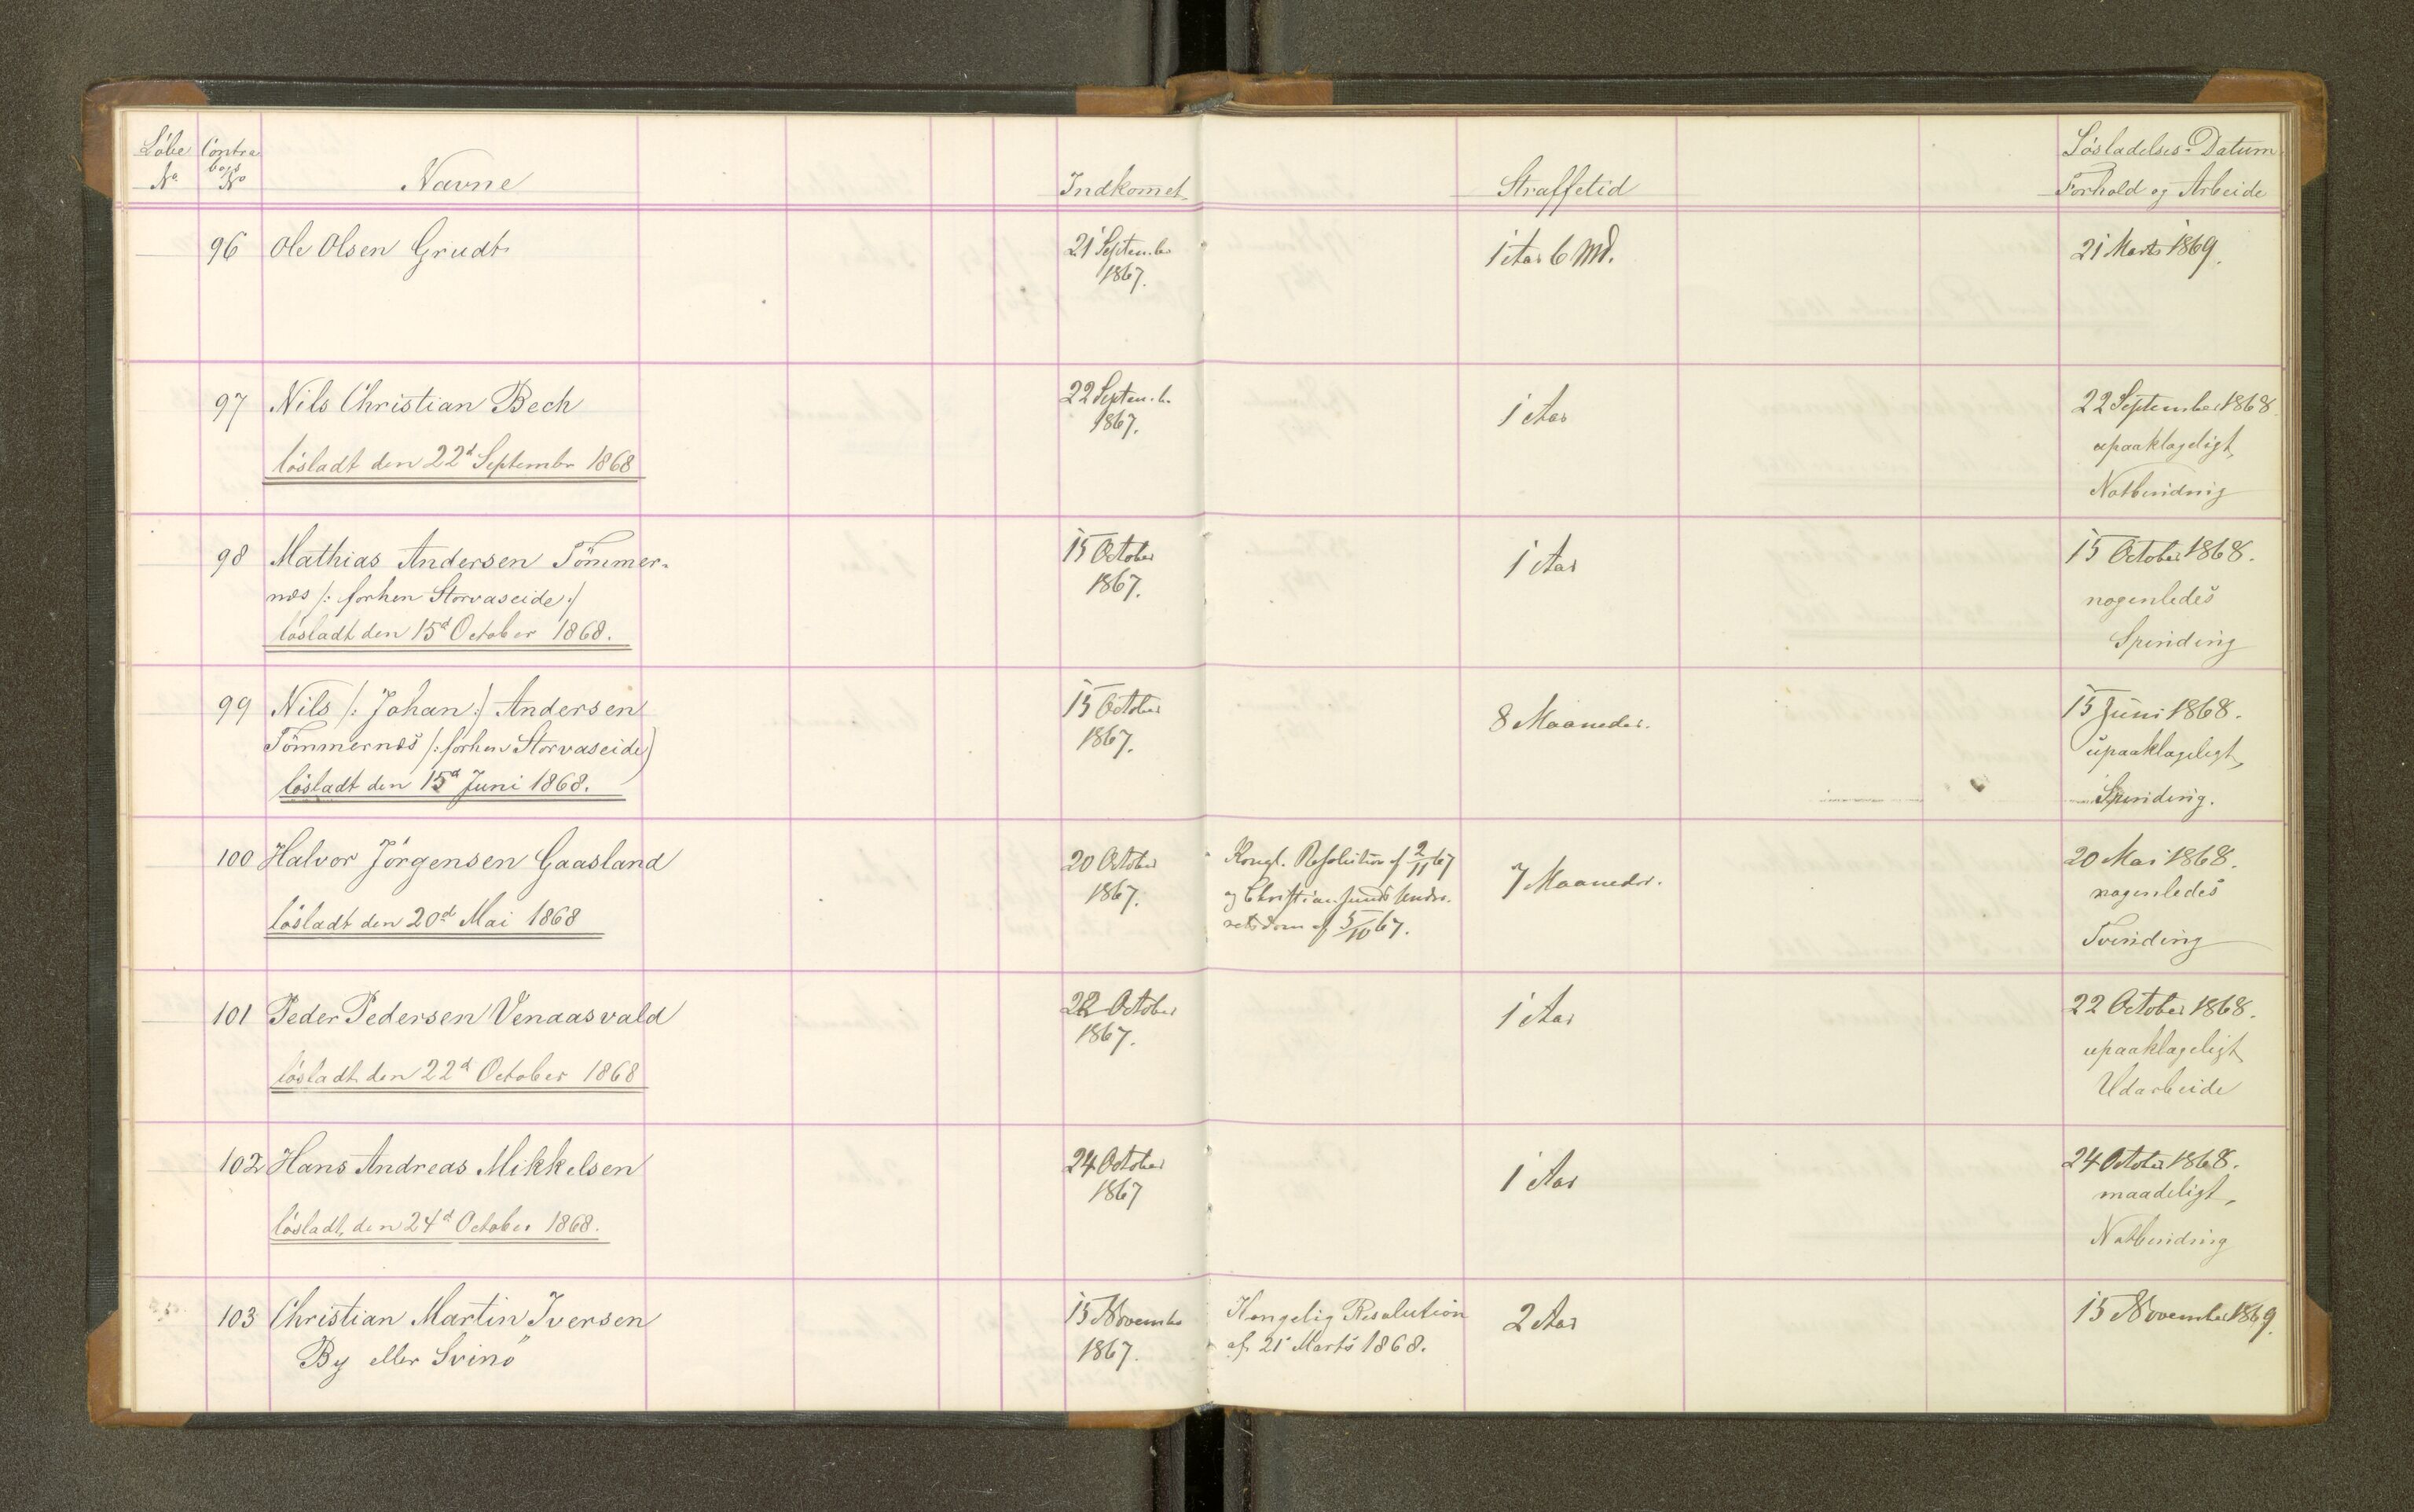 Löbe Contra Lösladelses-Datum
No bogs No Navne Indkomst Straffetid Forhold og Arbeide
96 Ole Olsen Grudt 21 Septembr 1 Aar 6 Md. 21 Marts 1869.
1867.
97 Nils Christian Bech 22 Septemb. 1 Aar 22 September 1868
1867. upaaklageligt,
lösladt den 22d Septembr 1868 Notbinding
98 Mathias Andersen Tömmer- 15 October 1 Aar 15 October 1868.
næs /: forhen Storvaseide :/ 1867. nogenledes
lösladt den 15d October 1868. Spinding
99 Nils /: Johan :/ Andersen 15 October 8 Maaneder. 15 Juni 1868.
Tömmernæs /: forhen Storvaseide) 1867. upaaklageligt,
lösladt den 15d Juni 1868. Spinding.
100 Halvor Jörgensen Gaasland 20 October Kongl. Resolution af 2/11 67 7 Maaneder. 20 Mai 1868.
1867. og Christiansunds Under- nogenledes
lösladt den 20de Mai 1868 retsdom af 5/10 67. Tvinding
101 Peder Pedersen Venaasvald 22 October 1 Aar 22 October 1868.
1867. upaaklageligt
lösladt den 22d October 1868 Udarbeide
102 Hans Andreas Mikkelsen 24 October 1 Aar 24 October 1868.
1867 maadeligt,
lösladt, den 24d October 1868. Notbinding
103 Christian Martin Iversen 15 Novembr Kongelig Resolution 2 Aar 15 November 1869.
By eller Svinö 1867. af 21 Marts 1868.